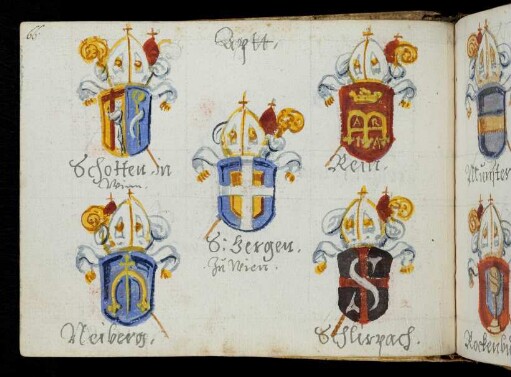 65
Äptt.
Schotten in
Wien.
Rein.
S: Gergen.
Zu Wien.
Neiberg.
Schlirpach.
Munster
Rockenbu